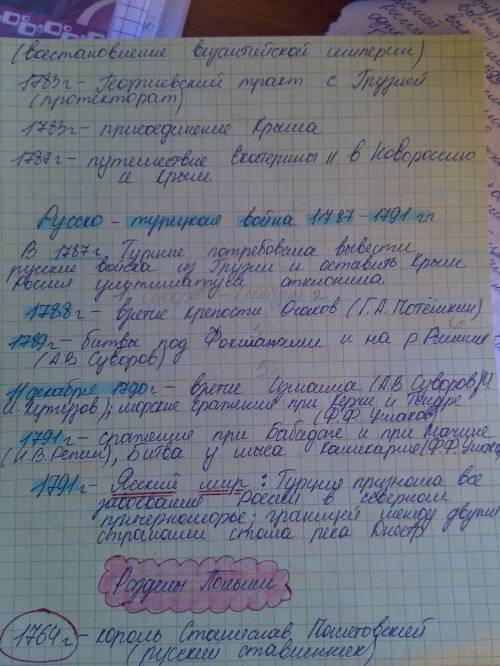 (восстановление византийской империи)
1783г - Георгиевский тракт с Грузией
(протекторат)
1783г - присоединение Крыма
1787г - путешествие Екатерины II в Новороссию
и Крым
Русско - турецкая война 1787-1791 гг.
В 1787г. Турция потребовала вывести
русские войска из Грузии и оставить Крым
Россия ультиматум отклонила
1788г - взятие крепости Очаков (Г.А. Потёмкин)
1789г - битва под Фокшанами и на р. Рымник
(А.В. Суворов)
11 декабря 1790г - взятие Измаила (А.В. Суворов, М.
И. Кутузов); морские сражения при Керчи и Тендре
(Ф.Ф. Ушаков)
1791г - сражение при Бабадаге и при Мачине
(Н.В. Репнин), битва у мыса Калиакрие (Ф.Ф. Ушаков)
1791г - Ясский мир: Турция признала все
завоевания России в северном
причерноморье; границей между двумя
странами стала река Днестр
Разделы Польши
1764г - король Станислав Понятовский
(русский ставленник)